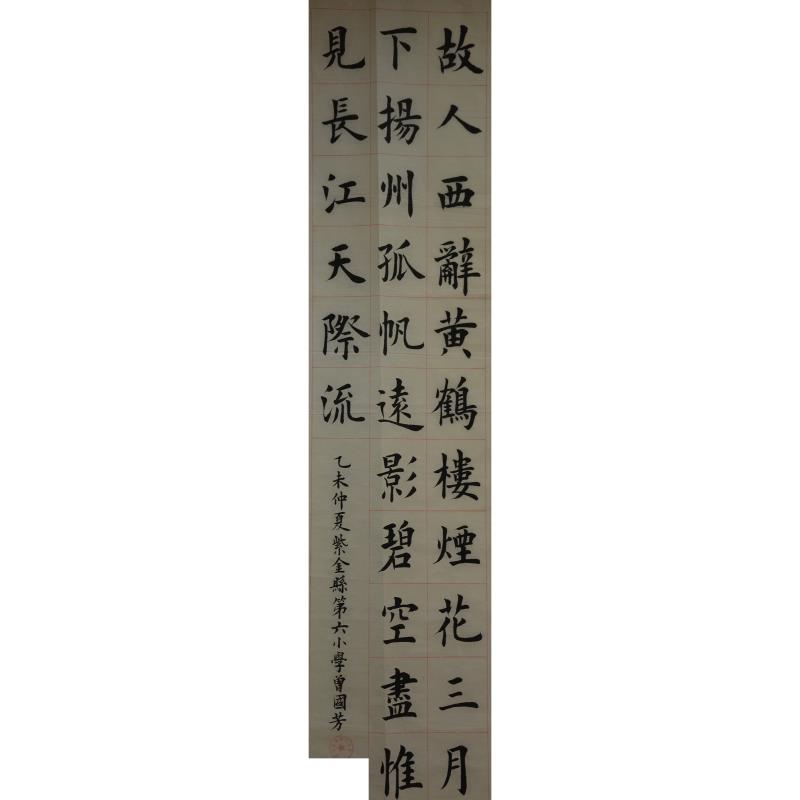 故人西辭黄鶴樓煙花三月
下揚州孤帆遠影碧空盡惟
見長江天際流
乙未仲夏紫金縣第六小學曾國芳